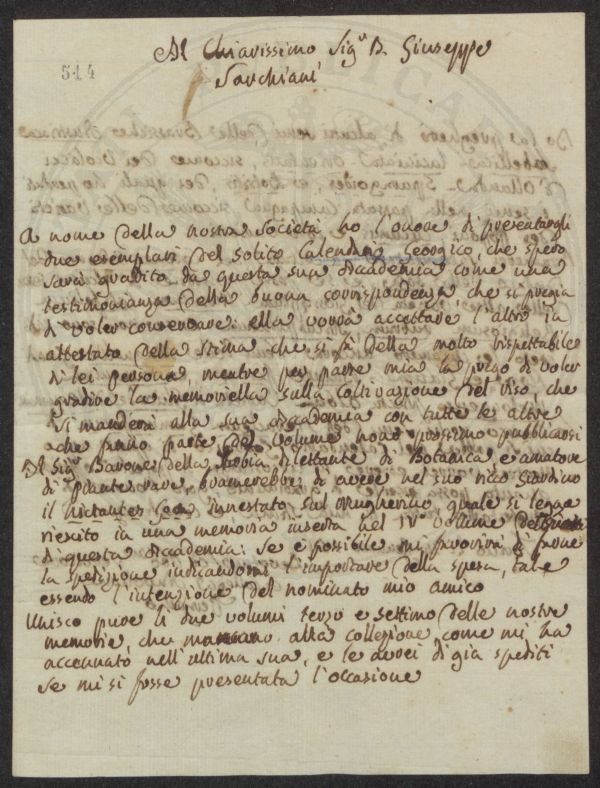 514
Al Chiarissimo Sig.r D. Giuseppe
Sarchiani
A nome della nostra Società ho l'onore di presentargli
due esemplari del solito Calendario Georgico, che spero
sarà gradito da questa sua Accademia come una
testimonianza della buona corrispondenza, che si pregia
di voler conservare: ella vorrà accettare l'altro in
attestato della stima che si fà della molto rispettabile
di lei persona, mentre per parte mia la prego di voler
gradire la memoriella sulla coltivazione del riso, che
vi manderà alla sua Accademia con tutte le altre
che fanno parte del volume nono prossimo pubblicarsi
Il Sig.r Barone della dilettante di Botanica e amatore
di piante rare, bramerebbe di avere nel suo ricco Giardino
il nictantes innestato sul mugherino, quale si legge
riescito in una memoria inserta nel IV° volume
di questa Accademia: se è possibile mi favorirà di farne
la spedizione indicandomi l'importare della spesa, tale
essendo l'intenzione del nominato mio amico
Unisco pure li due volumi terzo e settimo delle nostre
memorie, che mancano alla collezione come mi ha
accennato nell'ultima sua, e le avrei di già spediti
se mi si fosse presentata l'occasione